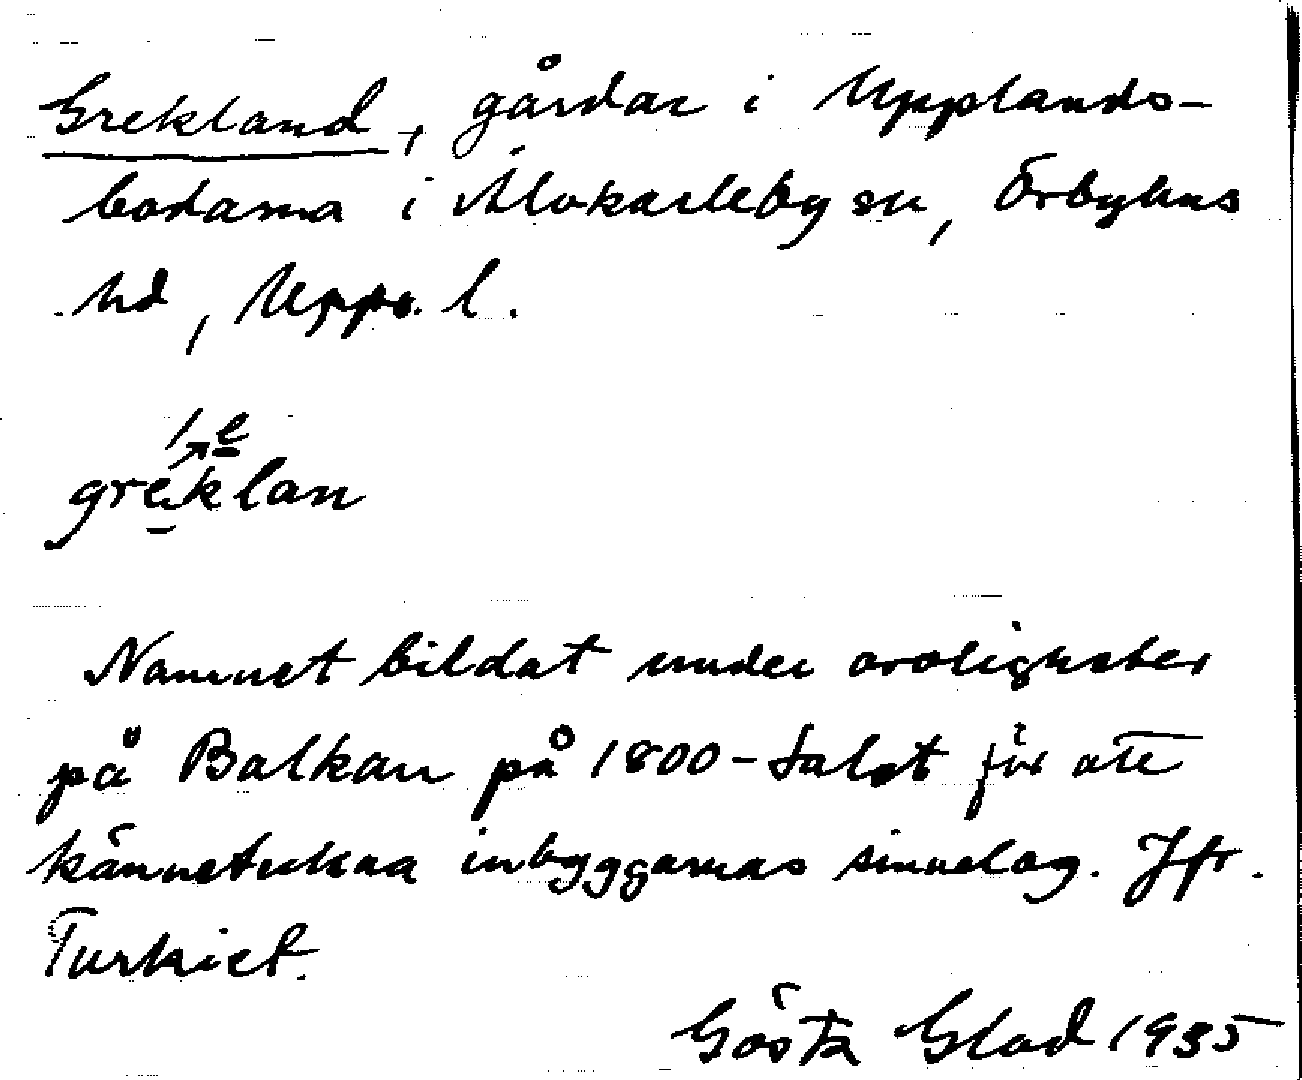 Grekland, gårdar i Upplands-
bodarna i Älvkarleby sn, Örbyhus
hd, Upps. l.
e
greklan
Namnet bildat under oroligheter
på Balkan på 1800-talet för att
känneteckna inbyggarnas sinnelag. Jfr.
Turkiet.
Gösta Glad 1935